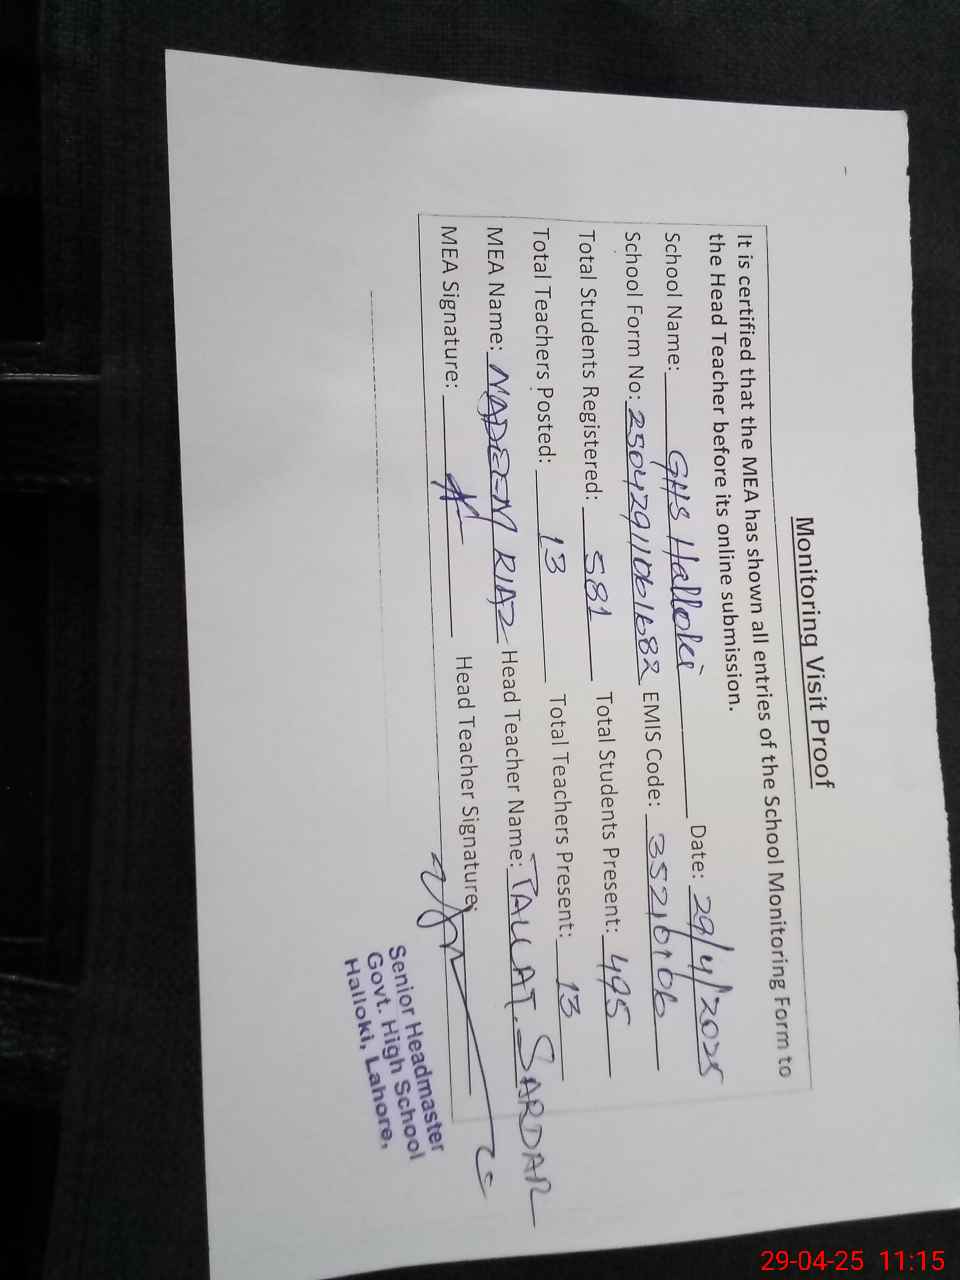 Monitoring Visit Proof
It is certified that the MEA has shown all entries of the School Monitoring Form to
the Head Teacher before its online submission.
School Name: GHS Halloki Date: 29/4/2025
School Form No: 25042911061682 EMIS Code: 35210106
Total Students Registered: 581 Total Students Present: 495
Total Teachers Posted: 13 Total Teachers Present: 13
MEA Name: NADEEM RIAZ Head Teacher Name: TALLAT. SARDAR
MEA Signature: Head Teacher Signature:
Senior Headmaster
Govt. High School
Halloki, Lahore,
29-04-25 11:15